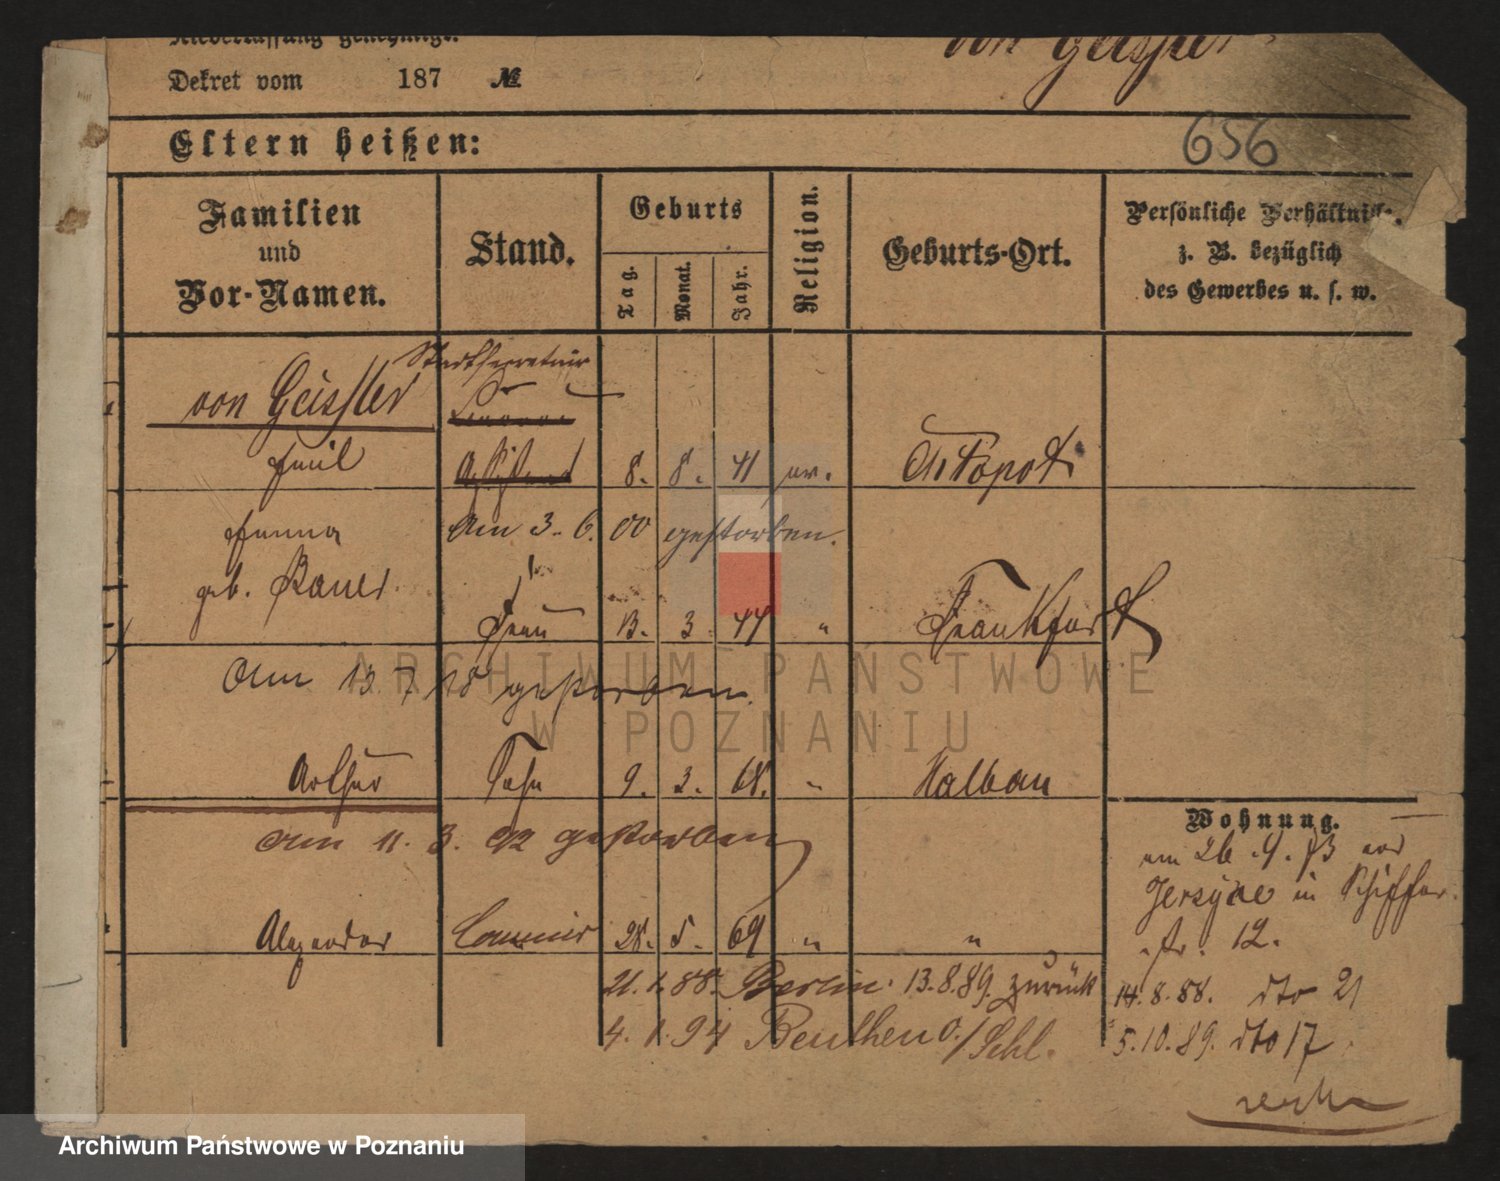 Niederlassung genehmigt.
von Geissler
Dekret vom 187 №
Eltern heißen:
656
Familien
und
Vor-Namen.
Stand.
Geburts
Tag.
Monat.
Jahr.
Religion.
Geburts-Ort.
Persönliche Verhältnisse.
z. B. bezüglich
des Gewerbes u. s. w.
Stadtsecretair
von Geissler
Emil 8. 8. 41 ev.
Am 3. 6. 00 gestorben.
geb. Bauer
Frau 13. 3. 44 " Frankfurt
Am 13. 7. 18 gestorben.
Arthur Sohn 9. 3. 68. " Halbau
Am 11. 3. 92 gestorben
Alexander 28. 5. 69 " "
21. 1. 88. Berlin. 13.8.89. zurück
4. 1. 94 Beuthen O./Schl.
Wohnung.
am 26. 4. 73
Jersyce in
12.
14. 8. 88. dto 21
5. 10. 89. dto 17
ARCHIWUM PAŃSTWOWE
W POZNANIU
Archiwum Państwowe w Poznaniu